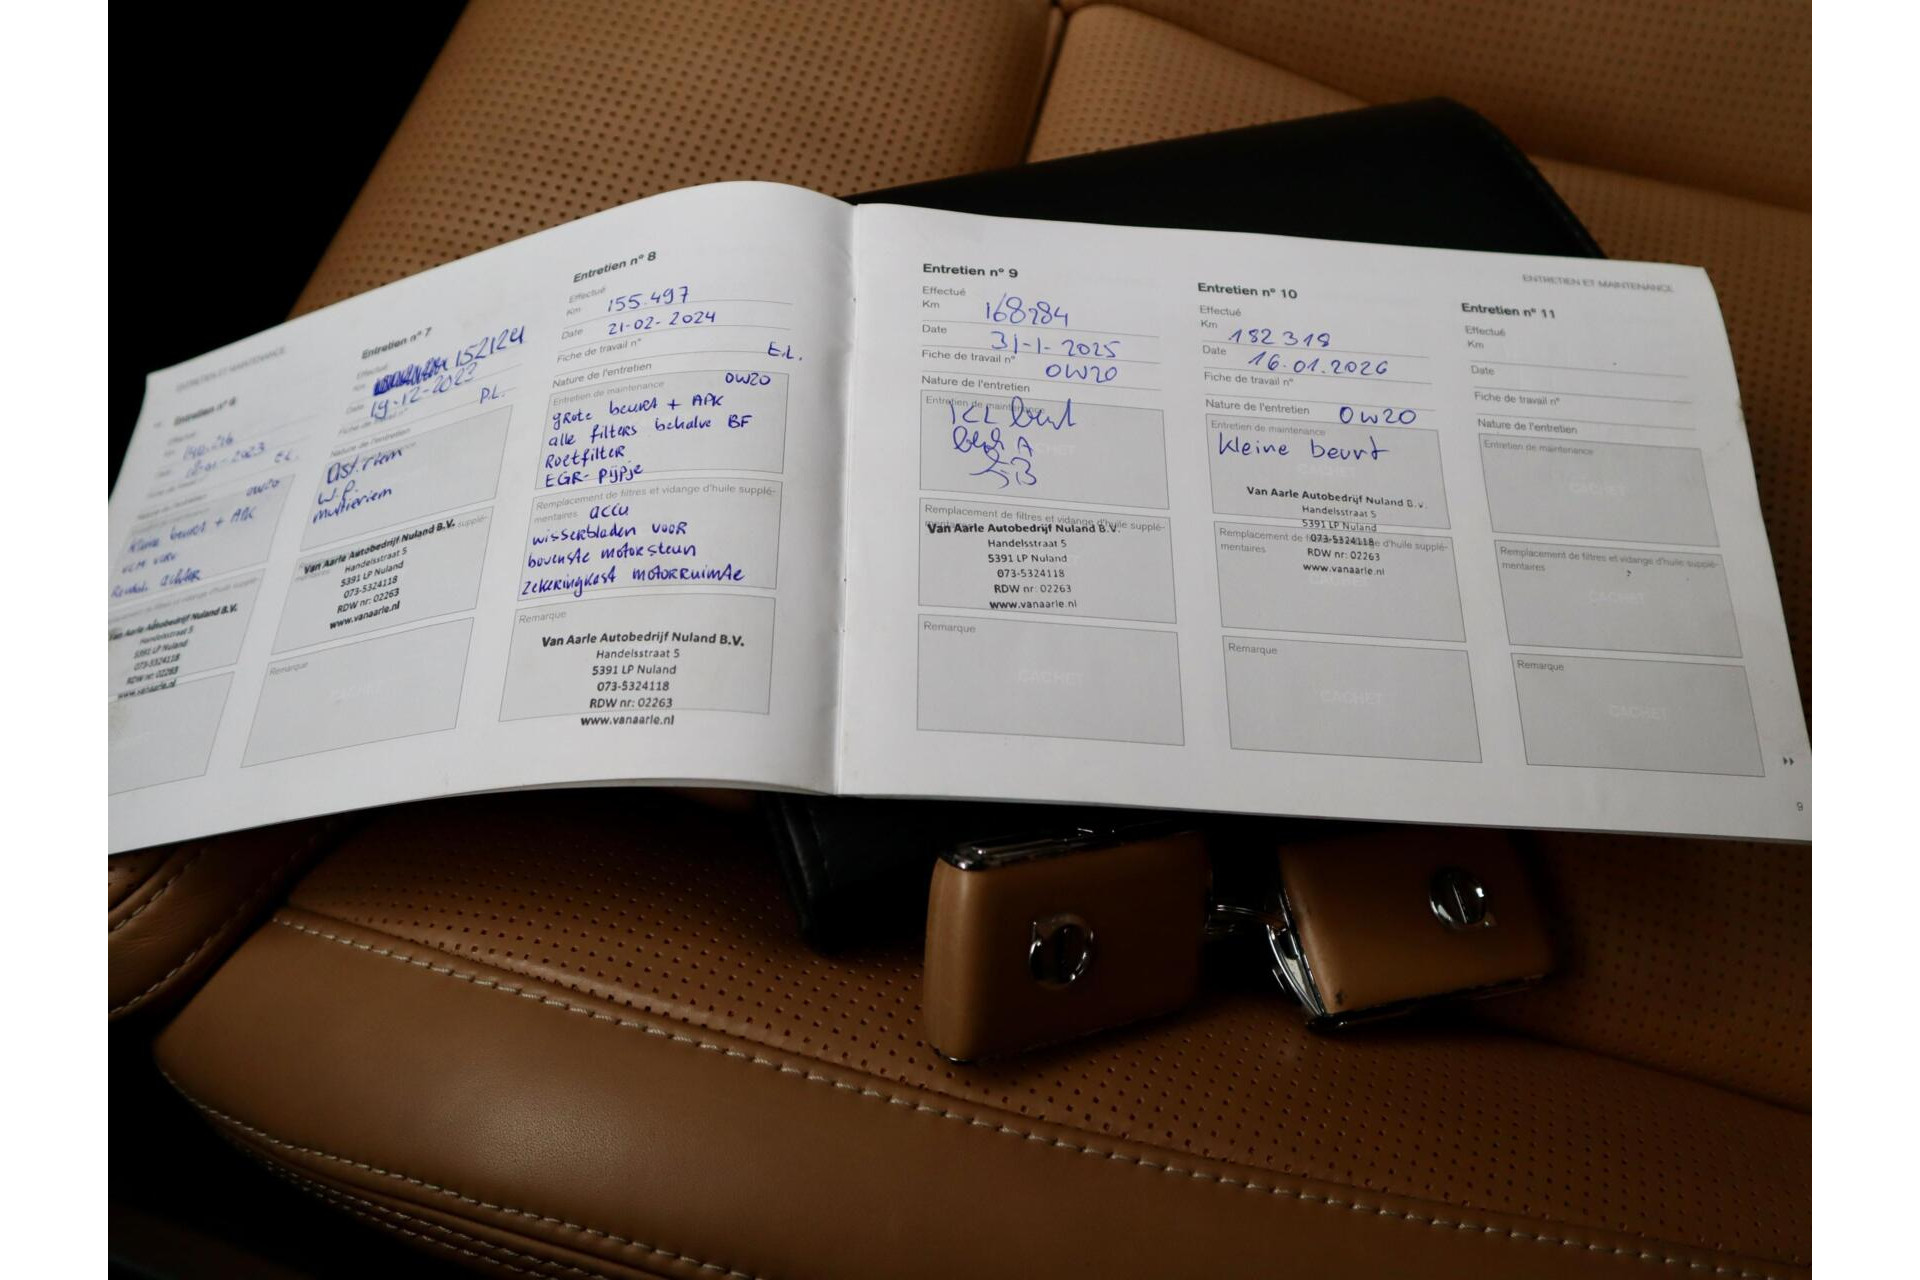 ENTRETIEN ET MAINTENANCE
Entretien n° 6
Effectué
Km
Date
E.L.
0W20
Kleine beurt + APK
Van Aarle Autobedrijf Nuland B.V.
Handelsstraat 5
5391 LP Nuland
073-5324118
RDW nr: 02263
www.vanaarle.nl
Entretien n° 7
Effectué
Km 152124
Date 19-12-2023
P.L.
Nature de l'entretien
Dist.riem
W.P.
multiriem
Van Aarle Autobedrijf Nuland B.V.
Handelsstraat 5
5391 LP Nuland
073-5324118
RDW nr: 02263
www.vanaarle.nl
Remarque
CACHET
Entretien n° 8
Effectué
Km 155.497
Date 21-02-2024
Fiche de travail n° E.L.
Nature de l'entretien 0W20
Entretien de maintenance
grote beurt + APK
alle filters behalve BF
Roetfilter
EGR-pijpje
Remplacement de filtres et vidange d'huile supplé-
mentaires accu
wisserbladen voor
bovenste motorsteun
Zekeringkast motorruimte
Remarque
Van Aarle Autobedrijf Nuland B.V.
Handelsstraat 5
5391 LP Nuland
073-5324118
RDW nr: 02263
www.vanaarle.nl
Entretien n° 9
Effectué
Km
Date 31-1-2025
Fiche de travail n° 0W20
Nature de l'entretien
Entretien de maintenance
KL beurt
Remplacement de filtres et vidange d'huile supplé-
Van Aarle Autobedrijf Nuland B.V.
Handelsstraat 5
5391 LP Nuland
073-5324118
RDW nr: 02263
www.vanaarle.nl
Remarque
CACHET
Entretien n° 10
Effectué
Km 182 318
Date 16.01.2026
Fiche de travail n°
Nature de l'entretien 0W20
Entretien de maintenance
Kleine beurt
Van Aarle Autobedrijf Nuland B.V.
Handelsstraat 5
5391 LP Nuland
073-5324118
Remplacement de filtres et vidange d'huile supplé-
mentaires
RDW nr: 02263
www.vanaarle.nl
Remarque
CACHET
ENTRETIEN ET MAINTENANCE
Entretien n° 11
Effectué
Km
Date
Fiche de travail n°
Nature de l'entretien
Entretien de maintenance
CACHET
Remplacement de filtres et vidange d'huile supplé-
mentaires
CACHET
Remarque
CACHET
9